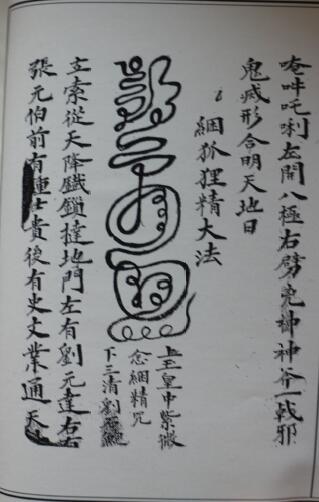 唵吽吒唎左開八極右劈兇神神斧一戟邪
鬼滅形合明天地日
綑狐狸精大法
上玉皇中紫微
念綑精咒
下三清劉
立索從天降鐵鎖撻地門左有劉元達右右
張元伯前有 仕貴後有史文業通天